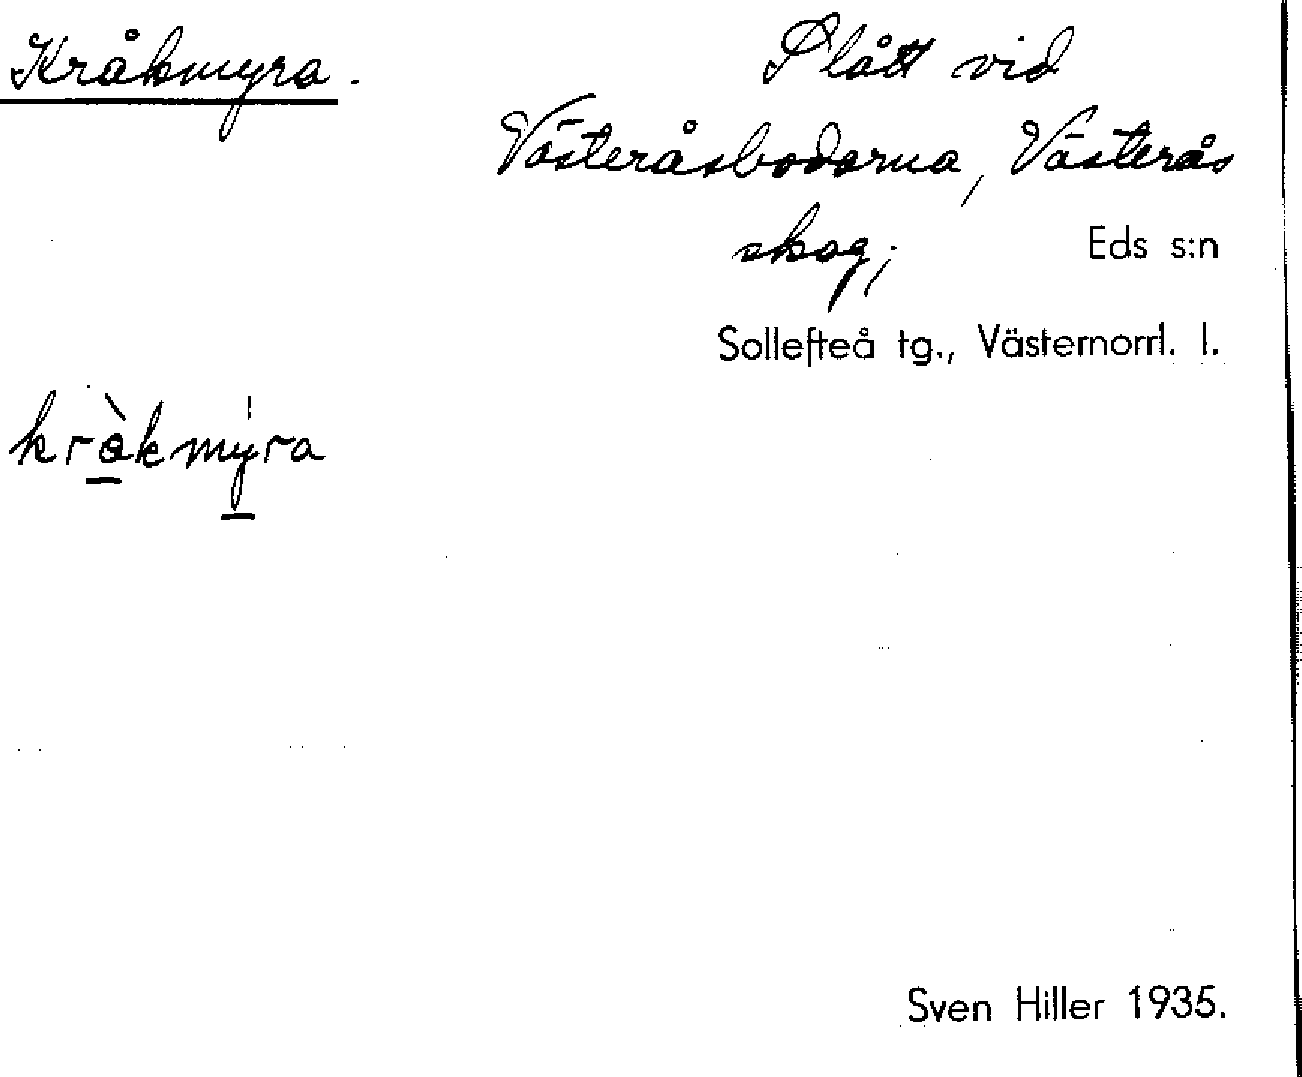 Kråkmyra.
Slått vid
Västeråsbodarna, Västerås
skog;
Eds s:n
Sollefteå tg., Västernorrl. l.
kràkmýra
Sven Hiller 1935.